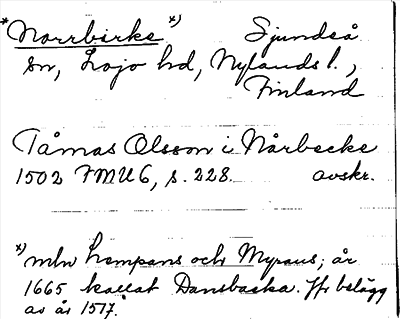 *Norrbirke *) Sjundeå
sn, Lojo hd, Nylands l.,
Finland
Tåmas Olsson i Nårbecke
1502 FMU 6, s. 228. avskr.
*) mln Hempans och Myrans; år
1665 kallat Dansbacka. Jfr belägg
av år 1517.